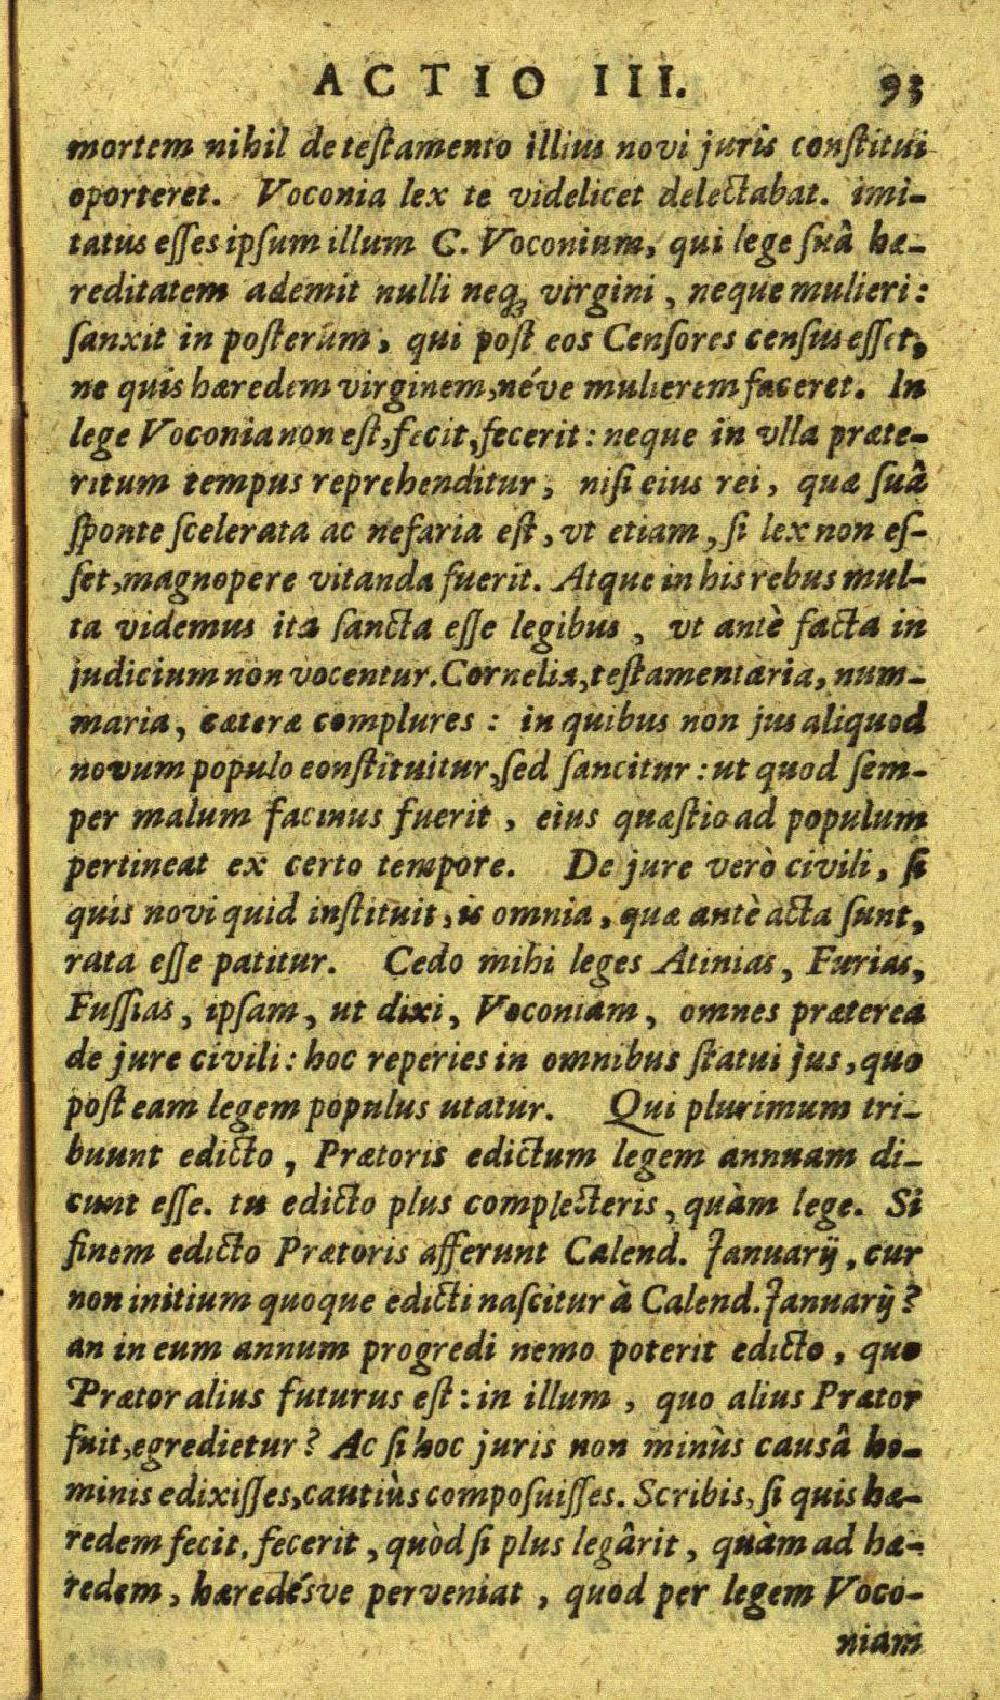 ACTIO III. 93
mortem nihil de teſtamento illius novi juris conſtitui
oporteret. Voconia lex te videlicet delectabat. imi-
tatus eſſes ipſum illum C. Voconium, qui lege ſuâ hæ-
reditatem ademit nulli neq; virgini, neque mulieri:
ſanxit in poſterùm, qui poſt eos Cenſores cenſus eſſet,
ne quis hæredem virginem, néve mulierem faceret. In
lege Voconia non eſt, fecit, fecerit: neque in vlla præte-
ritum tempus reprehenditur, niſi eius rei, quæ ſuâ
ſponte ſcelerata ac nefaria eſt, vt etiam, ſi lex non eſ-
ſet, magnopere vitanda fuerit. Atque in his rebus mul-
ta videmus ita ſancta eſſe legibus, vt antè facta in
judicium non vocentur. Cornelia, teſtamentaria, num-
maria, cæteræ complures: in quibus non jus aliquod
novum populo eonſtituitur, ſed ſancitur: ut quod ſem-
per malum facinus fuerit, eius quæſtio ad populum
pertineat ex certo tempore. De jure verò civili, ſi
quis novi quid inſtituit, is omnia, quæ antè acta ſunt,
rata eſſe patitur. Cedo mihi leges Atinias, Furias,
Fuſſias, ipſam, ut dixi, Voconiam, omnes præterea
de jure civili: hoc reperies in omnibus ſtatui jus, quo
poſt eam legem populus utatur. Qui plurimum tri-
buunt edicto, Prætoris edictum legem annuam di-
cunt eſſe. tu edicto plus complecteris, quàm lege. Si
finem edicto Prætoris afferunt Calend. Januarij, cur
non initium quoque edicti naſcitur à Calend. Januarij?
an in eum annum progredi nemo poterit edicto, quo
Prætor alius futurus eſt: in illum, quo alius Prætor
fuit, egredietur? Ac ſi hoc juris non minùs causâ ho-
minis edixiſſes, cautiùs compoſuiſſes. Scribis, ſi quis hæ-
redem fecit, fecerit, quòd ſi plus legârit, quàm ad hæ-
redem, hæredésve perveniat, quod per legem Voco-
niam